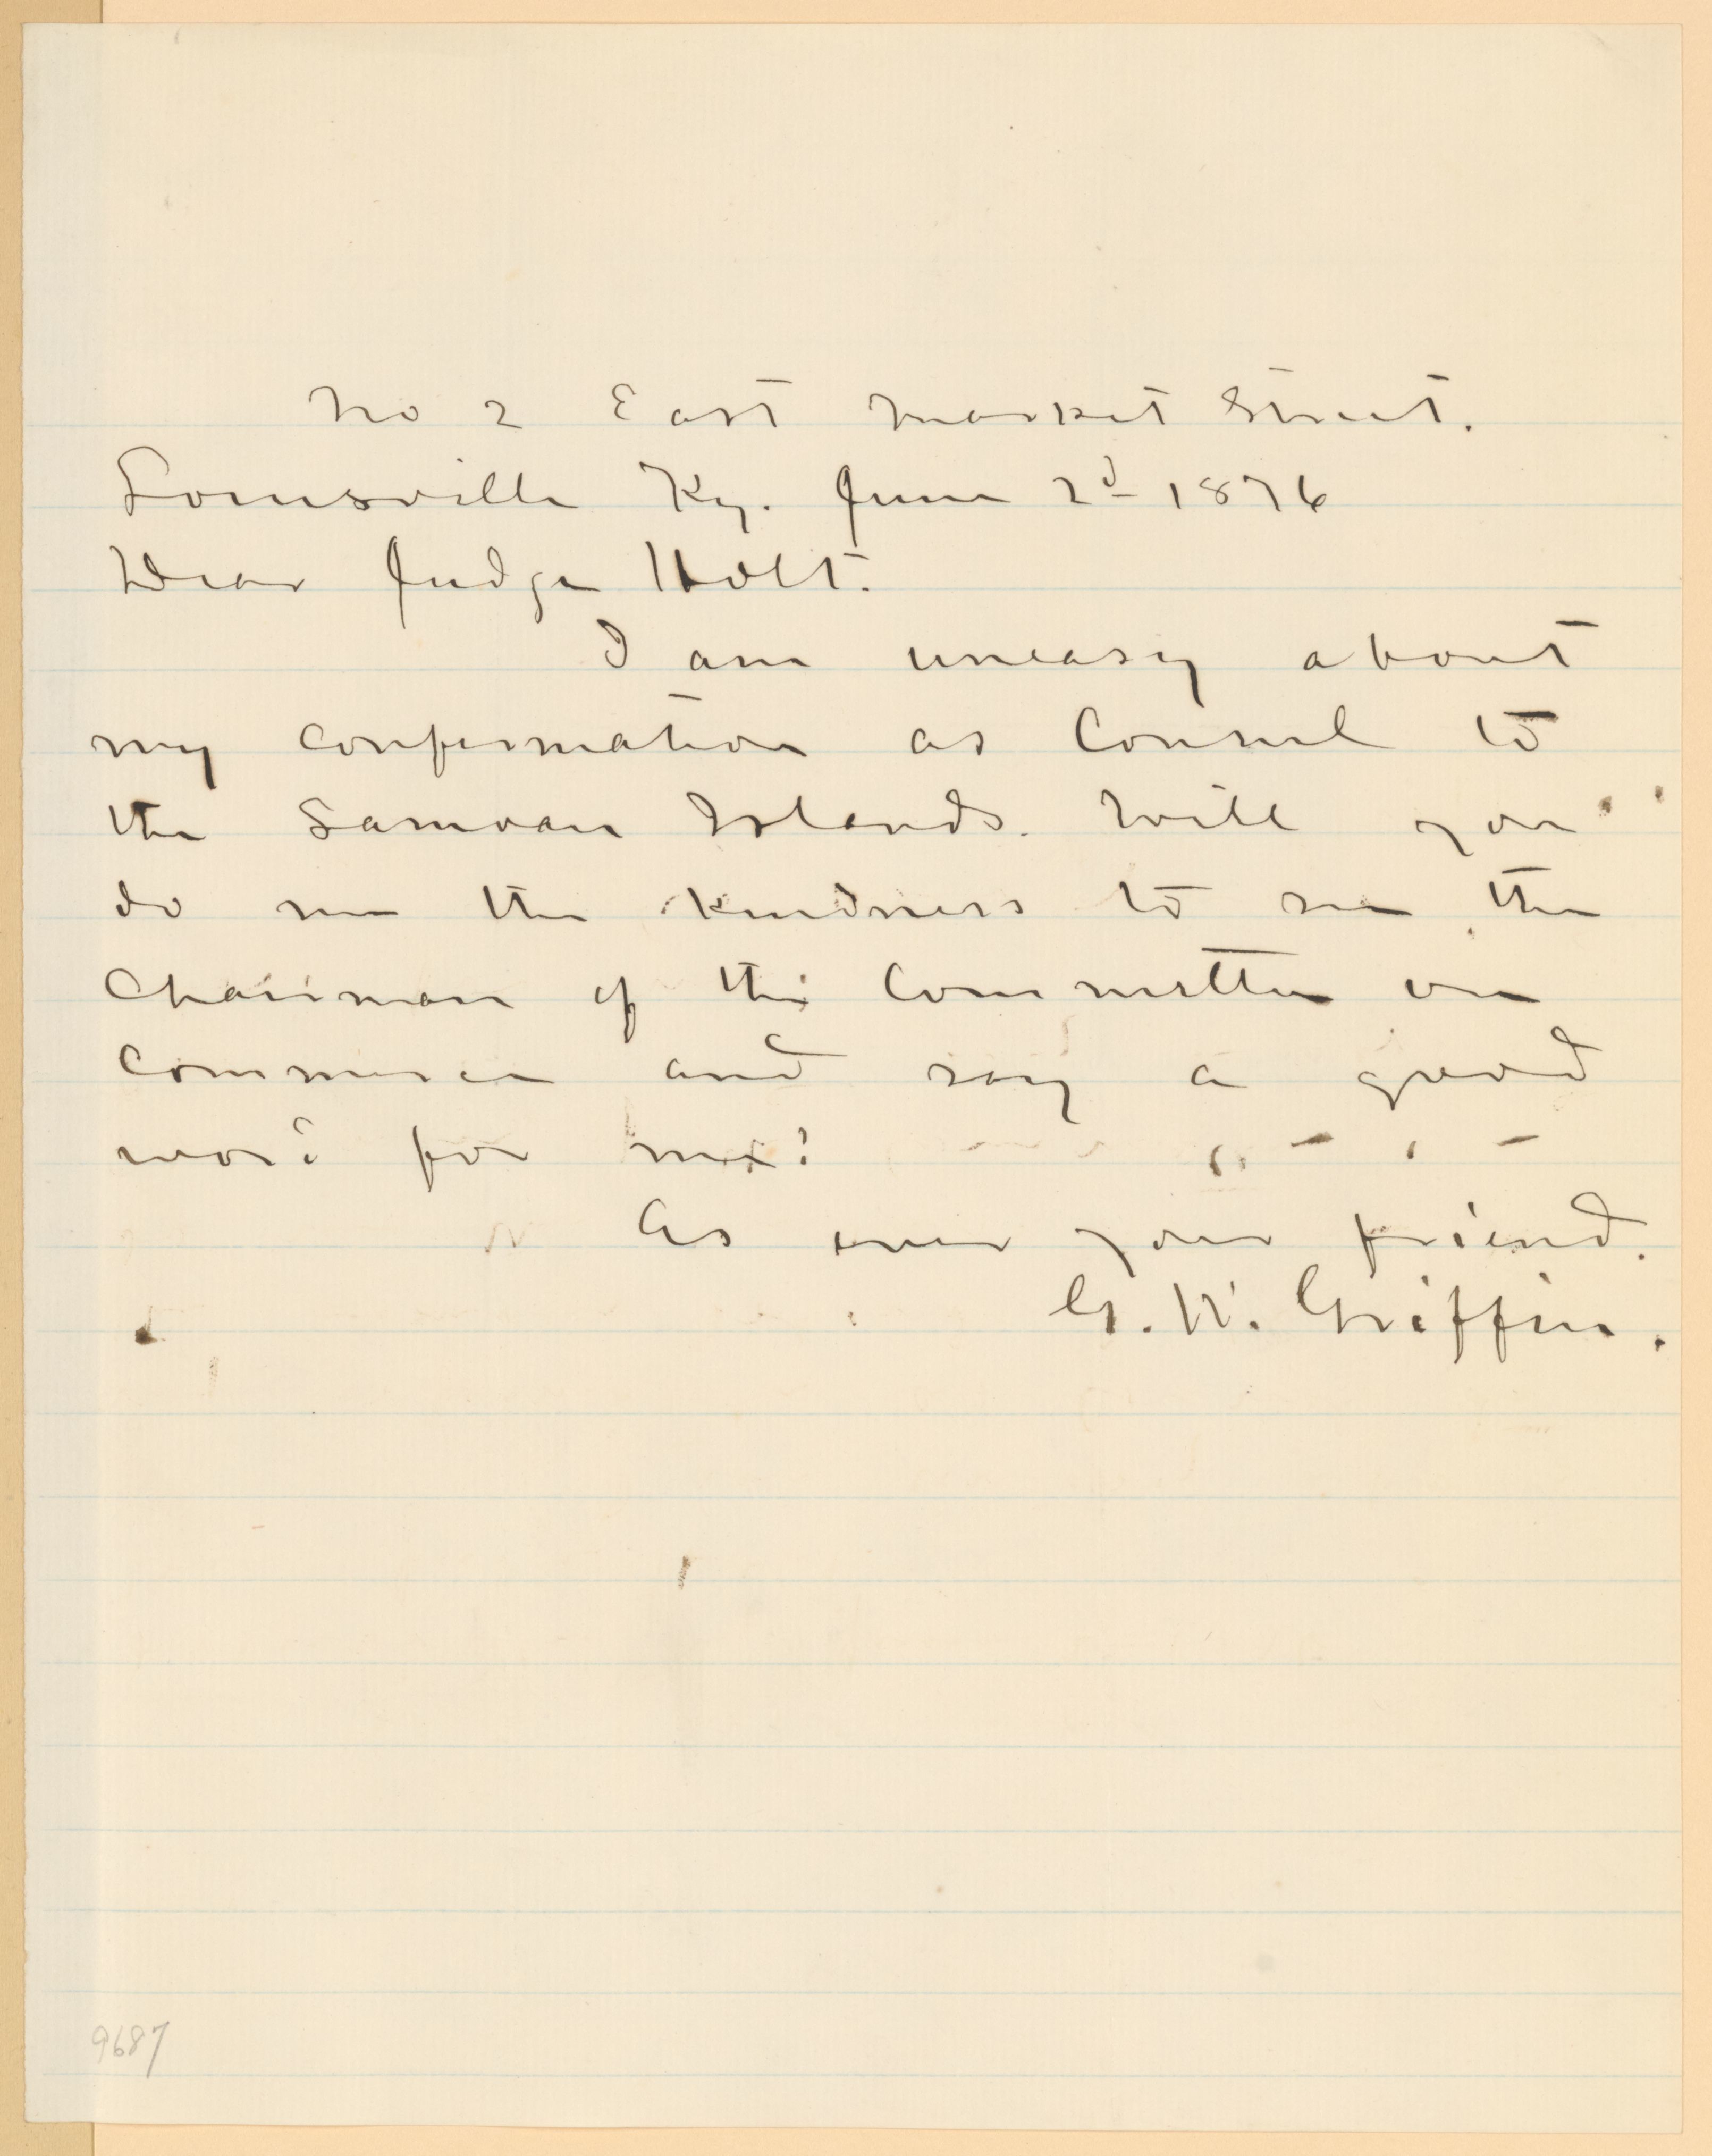 No 2 East Market Street.
Louisville Ky. June 2d 1876
Dear Judge Holt.
I am uneasy about
my confirmation as Consul to
the Samoan Islands. Will you
do me the kindness to see the
Chairman of the Committee on
Commerce and say a good
word for me?
As ever your friend.
G. W. Griffin.
9687